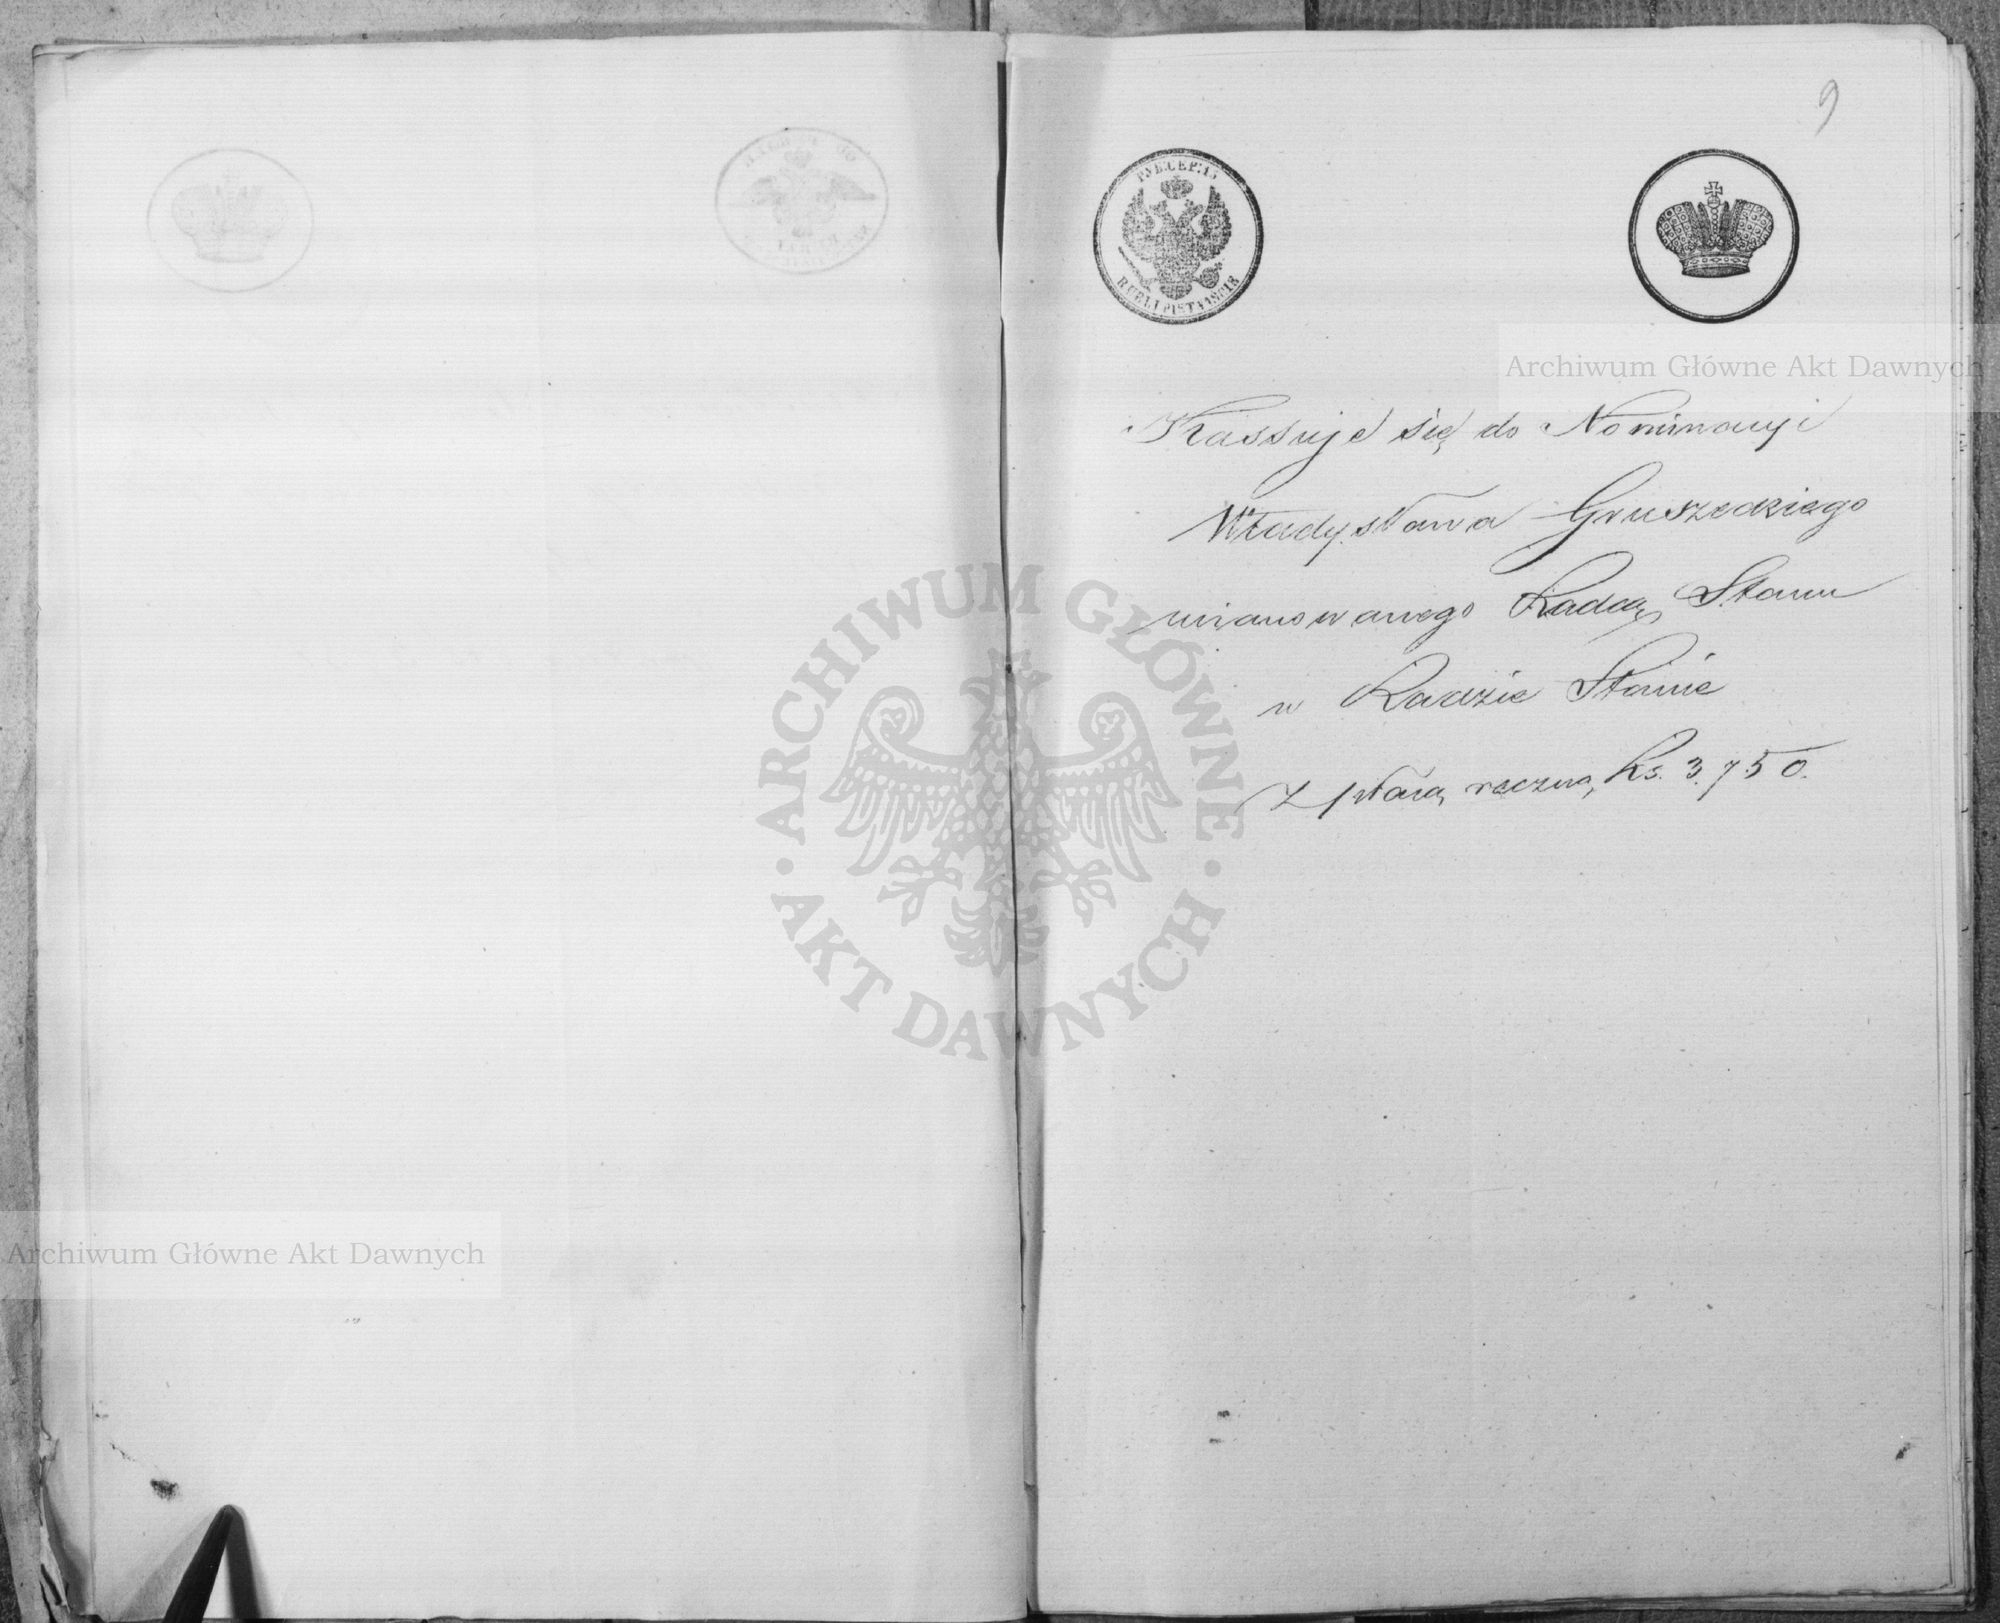 9
РУБ:СЕР:15
Archiwum Główne Akt Dawnych
Kassuje się do Nominacyi
Władysława Gruszeckiego
mianowanego Radcą Stanu
w Radzie Stanu
z płacą roczną Rs. 3.750.
ARCHIWUM GŁÓWNE
AKT DAWNYCH
Archiwum Główne Akt Dawnych